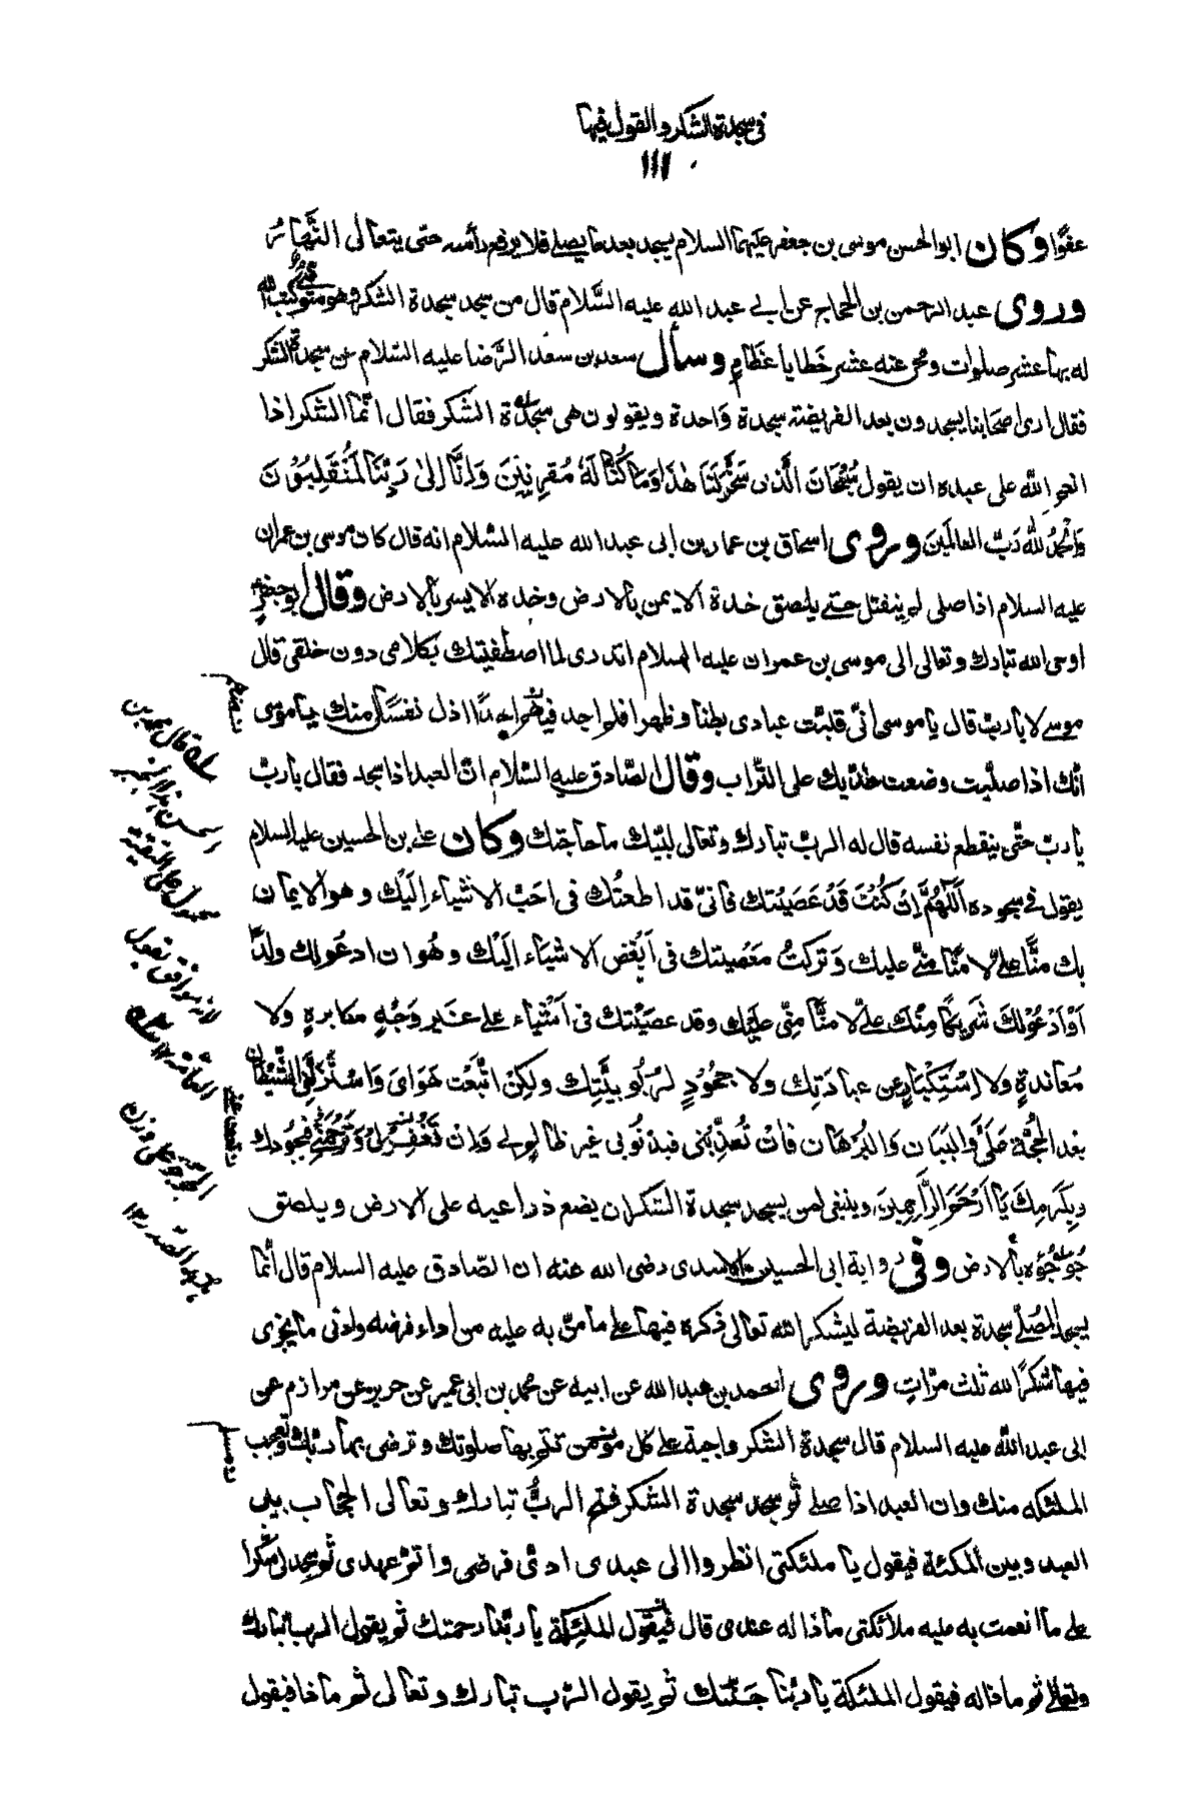 في سجدة الشكر والقول فيها
١١١
عفوًا وكان ابو الحسن موسى بن جعفر عليهما السلام يسجد بعد ما يصلي فلا يرفع رأسه حتى يتعالى النَّهار
وروى عبد الرحمن بن الحجاج عن ابي عبد الله عليه السَّلام قال من سجد سجدة الشكر وهو متوضئ كتب الله
له بها عشر صلوات ومحى عنه عشر خَطايا عَظامٍ وسأل سعد بن سعد الرَّضا عليه السّلام عن سجدة الشكر
فقال ارى اصحابنا يسجدون بعد الفريضة سجدة وَاحدة ويقولون هى سجدة الشكر فقال انّما الشكر اذا
انعم الله على عبده ان يقول سُبْحَانَ الَّذى سَخَّرَ لَنَا هٰذَا وَمَا كُنَّا لَهُ مُقرِنِينَ وَاِنَّا اِلىٰ رَبِّنَا لَمُنْقَلِبُوْنَ
وَالْحَمْدُ لله رَبِّ العالَمينَ وروى اسحاق بن عمار بن ابى عبد الله عليه السّلام انه قال كان موسى بن عمران
عليه السلام اذا صلى لم ينفتل حتى يلصق خدة الايمن بالارض وخده الايسر بالارض وقال ابو جعفر
اوحى الله تبارك وتعالى الى موسى بن عمران عليه السلام اتدرى لما اصطفيتك بكلامى دون خلقى قال
موسى لا يا ربّ قال يا موسى انّى قلبْت عبادى بطنا وظهرا فلم اجد فيهم احدًا اذل نفسًا لى منك يا موسى
انّك اذا صلّيت وضعت خدّيك على التّراب وقال الصّادق عليه السّلام انّ العبد اذا سجد فقال يا ربّ
يا ربّ حتّى ينقطع نفسه قال له الربّ تبارك وتعالى لبّيك ما حاجتك وكان على بن الحسين عليه السلام
يقول فى سجوده اَللّٰهُمَّ اِنْ كُنْتَ قَدْ عَصَيْتك فانّى قد اطعتُك فى احَبّ الاشياء اِلَيْك وهو الايمان
بك منًّا علىّ لا منًّا منّى عليك وَتركتُ معَصيتك فى اَبْغَض الاشياء اليَك وهُو ان ادعُو لك ولدًا
اَوْ اَدْعُوْ لَكَ شَريكًا مِنْكَ علىّ لا منًّا مِنّى عليَك وقد عصَيْتك فى اَشْياء على غير وَجْهِ مكابرةٍ ولا
مُعاندةٍ ولا اِسْتِكْبارٍ عن عبادَتِك ولا جحُوْدٍ لرُبُوبيّتِك ولكِنْ اتّبَعْت هَواىَ وَاسْتَزَلّنِى الشَّيْطان
بعَد الحُجّة عَلَىَّ وَالبَيَان وَالبُرْهَان فانْ تُعذِّبْنى فبذنُوبى غير ظالم لى وَانْ تَغْفِرْ لى وَتَرْحَمْنى فبجُودك
وبِكَرمِكَ يَا اَرْحَمَ الرَّاحِمِينَ وينبغى لمن يسجد سجدة الشكر ان يضع ذراعيه على الارض ويلصق
جُؤجُؤه بالارض وفى رواية ابى الحسين الاسدى رضى الله عنه ان الصّادق عليه السلام قال انّما
يسجد المُصلّى سجدة بعد الفريضة ليشكر الله تعالى ذكره فيها على ما منّ به عليه من اداء فرضه وادنى ما يجزى
فيها شكرًا لله ثلث مرّاتٍ وروى احمد بن عبد الله عن ابيه عن محمد بن ابى عمير عن حريز عن مرازم عن
ابى عبد الله عليه السلام قال سجدة الشكر واجبة على كل تتم بها صلوتك وترضى بها ربّك وتعجب
الملئكه منك وان العبد اذا صلى ثُمّ سجد سجدة الشكر فتح الربُّ تبارك وتعالى الحجاب بين
العبد وبين الملئكة فيقول يا ملئكتى انظروا الى عبدى ادّى فرضى واتمّ عهدى ثم سجد لى شكرا
على ما انعمت به عليه ملائكتى ماذا له عندى قال فيقول الملئكة يا ربّنا رحمتك ثم يقول الرب تبارك
وتعالى ثم ماذا له فيقول الملئكة يا ربّنا جَنّتك ثم يقول الرّب تبارك وتعالى ثم ماذا فيقول